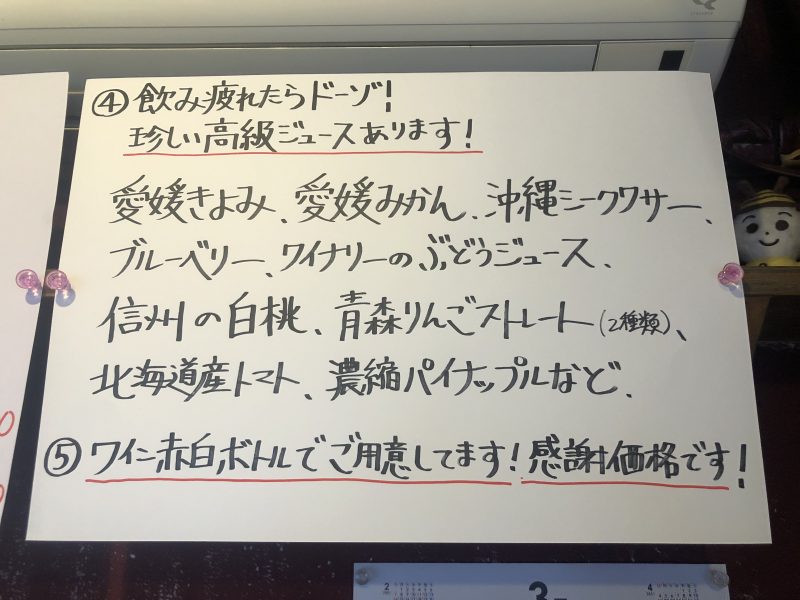 ④飲み疲れたらドーゾ!
珍しい高級ジュースあります!
愛媛きよみ、愛媛みかん、沖縄シークワサー、
ブルーベリー、ワイナリーのぶどうジュース、
信州の白桃、青森りんごストレート(2種類)、
北海道産トマト、濃縮パイナップルなど、
⑤ワイン赤白ボトルでご用意してます!感謝価格です!
2
3
4